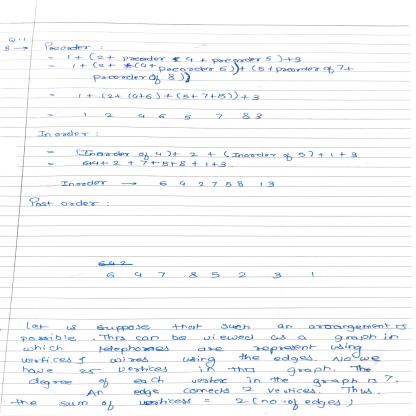 Q.1
B → Preorder :
= 1 + (2 + preorder 4 + preorder 5) + 3
= 1 + (2 + (4 + preorder 6)) + (5 + preorder of 7 +
preorder of 8))
= 1 + (2 + (4+6) + (5+7+8)) + 3
= 1 2 4 6 5 7 8 3
In order :
= (Inorder of 4) + 2 + (Inorder of 5) + 1 + 3
= 64 + 2 + 7 + 5 + 8 + 1 + 3
Inorder → 6 4 2 7 5 8 1 3
Post order :
642
6 4 7 8 5 2 3 1
Let us suppose that such an arrangement is
possible. This can be viewed as a graph in
which telephones are represent using
vertices & wires using the edges. No we
have 25 vertices in this graph. The
degree of each vertex in the graph is 7.
An edge connects 2 vertices. Thus.
the sum of vertices = 2 (no. of edges)